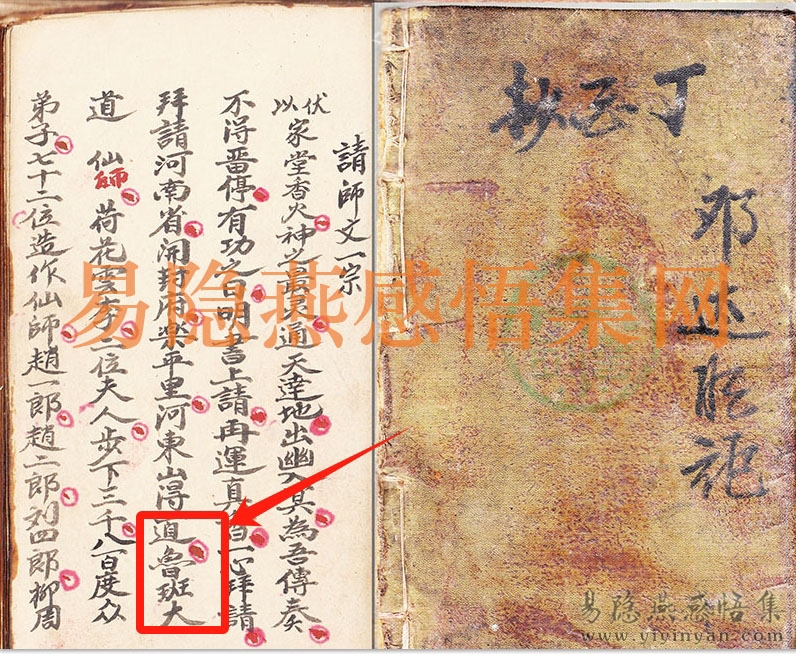 請師文一宗
伏以家堂香火神之最灵通天達地出幽入冥為吾傳奏
不得停有功之日明書上請再運真香一心拜請
拜請河南省開封府樂平里河東山得道魯班大
道仙師荷花雲李二位夫人步下三千八百度众
弟子七十二位造作仙師趙一郎趙二郎刘四郎柳周
丁抄
邓述記
易隐燕感悟集网
易隐燕感悟集
www.yiyinyan.com